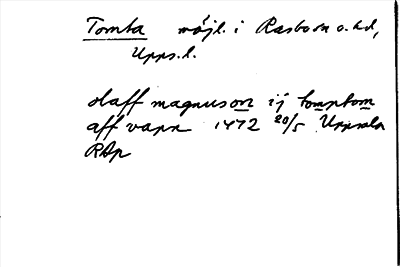 Tomta möjl. i Rasbo sn o. hd,
Upps. l.
olaff magnuson ij tomptom
aff vapn 1472 20/5 Uppsala
RAp